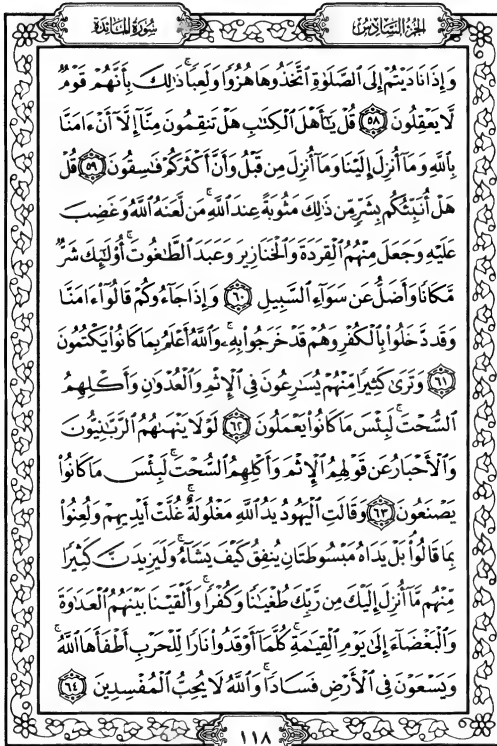 سُورَةُ المَائدة
الجزء السَّادِسُ
وَإِذَا نَادَيْتُمْ إِلَى ٱلصَّلَوٰةِ ٱتَّخَذُوهَا هُزُوًا وَلَعِبًا ۚ ذَٰلِكَ بِأَنَّهُمْ قَوْمٌ
لَّا يَعْقِلُونَ ٥٨ قُلْ يَـٰٓأَهْلَ ٱلْكِتَـٰبِ هَلْ تَنقِمُونَ مِنَّآ إِلَّآ أَنْ ءَامَنَّا
بِٱللَّهِ وَمَآ أُنزِلَ إِلَيْنَا وَمَآ أُنزِلَ مِن قَبْلُ وَأَنَّ أَكْثَرَكُمْ فَـٰسِقُونَ ٥٩ قُلْ
هَلْ أُنَبِّئُكُم بِشَرٍّ مِّن ذَٰلِكَ مَثُوبَةً عِندَ ٱللَّهِ ۚ مَن لَّعَنَهُ ٱللَّهُ وَغَضِبَ
عَلَيْهِ وَجَعَلَ مِنْهُمُ ٱلْقِرَدَةَ وَٱلْخَنَازِيرَ وَعَبَدَ ٱلطَّـٰغُوتَ ۚ أُو۟لَـٰٓئِكَ شَرٌّ
مَّكَانًا وَأَضَلُّ عَن سَوَآءِ ٱلسَّبِيلِ ٦٠ وَإِذَا جَآءُوكُمْ قَالُوٓا۟ ءَامَنَّا
وَقَد دَّخَلُوا۟ بِٱلْكُفْرِ وَهُمْ قَدْ خَرَجُوا۟ بِهِۦ ۚ وَٱللَّهُ أَعْلَمُ بِمَا كَانُوا۟ يَكْتُمُونَ
٦١ وَتَرَىٰ كَثِيرًا مِّنْهُمْ يُسَـٰرِعُونَ فِى ٱلْإِثْمِ وَٱلْعُدْوَٰنِ وَأَكْلِهِمُ
ٱلسُّحْتَ ۚ لَبِئْسَ مَا كَانُوا۟ يَعْمَلُونَ ٦٢ لَوْلَا يَنْهَىٰهُمُ ٱلرَّبَّـٰنِيُّونَ
وَٱلْأَحْبَارُ عَن قَوْلِهِمُ ٱلْإِثْمَ وَأَكْلِهِمُ ٱلسُّحْتَ ۚ لَبِئْسَ مَا كَانُوا۟
يَصْنَعُونَ ٦٣ وَقَالَتِ ٱلْيَهُودُ يَدُ ٱللَّهِ مَغْلُولَةٌ ۚ غُلَّتْ أَيْدِيهِمْ وَلُعِنُوا۟
بِمَا قَالُوا۟ ۘ بَلْ يَدَاهُ مَبْسُوطَتَانِ يُنفِقُ كَيْفَ يَشَآءُ ۚ وَلَيَزِيدَنَّ كَثِيرًا
مِّنْهُم مَّآ أُنزِلَ إِلَيْكَ مِن رَّبِّكَ طُغْيَـٰنًا وَكُفْرًا ۚ وَأَلْقَيْنَا بَيْنَهُمُ ٱلْعَدَٰوَةَ
وَٱلْبَغْضَآءَ إِلَىٰ يَوْمِ ٱلْقِيَـٰمَةِ ۚ كُلَّمَآ أَوْقَدُوا۟ نَارًا لِّلْحَرْبِ أَطْفَأَهَا ٱللَّهُ ۚ
وَيَسْعَوْنَ فِى ٱلْأَرْضِ فَسَادًا ۚ وَٱللَّهُ لَا يُحِبُّ ٱلْمُفْسِدِينَ ٦٤
١١٨